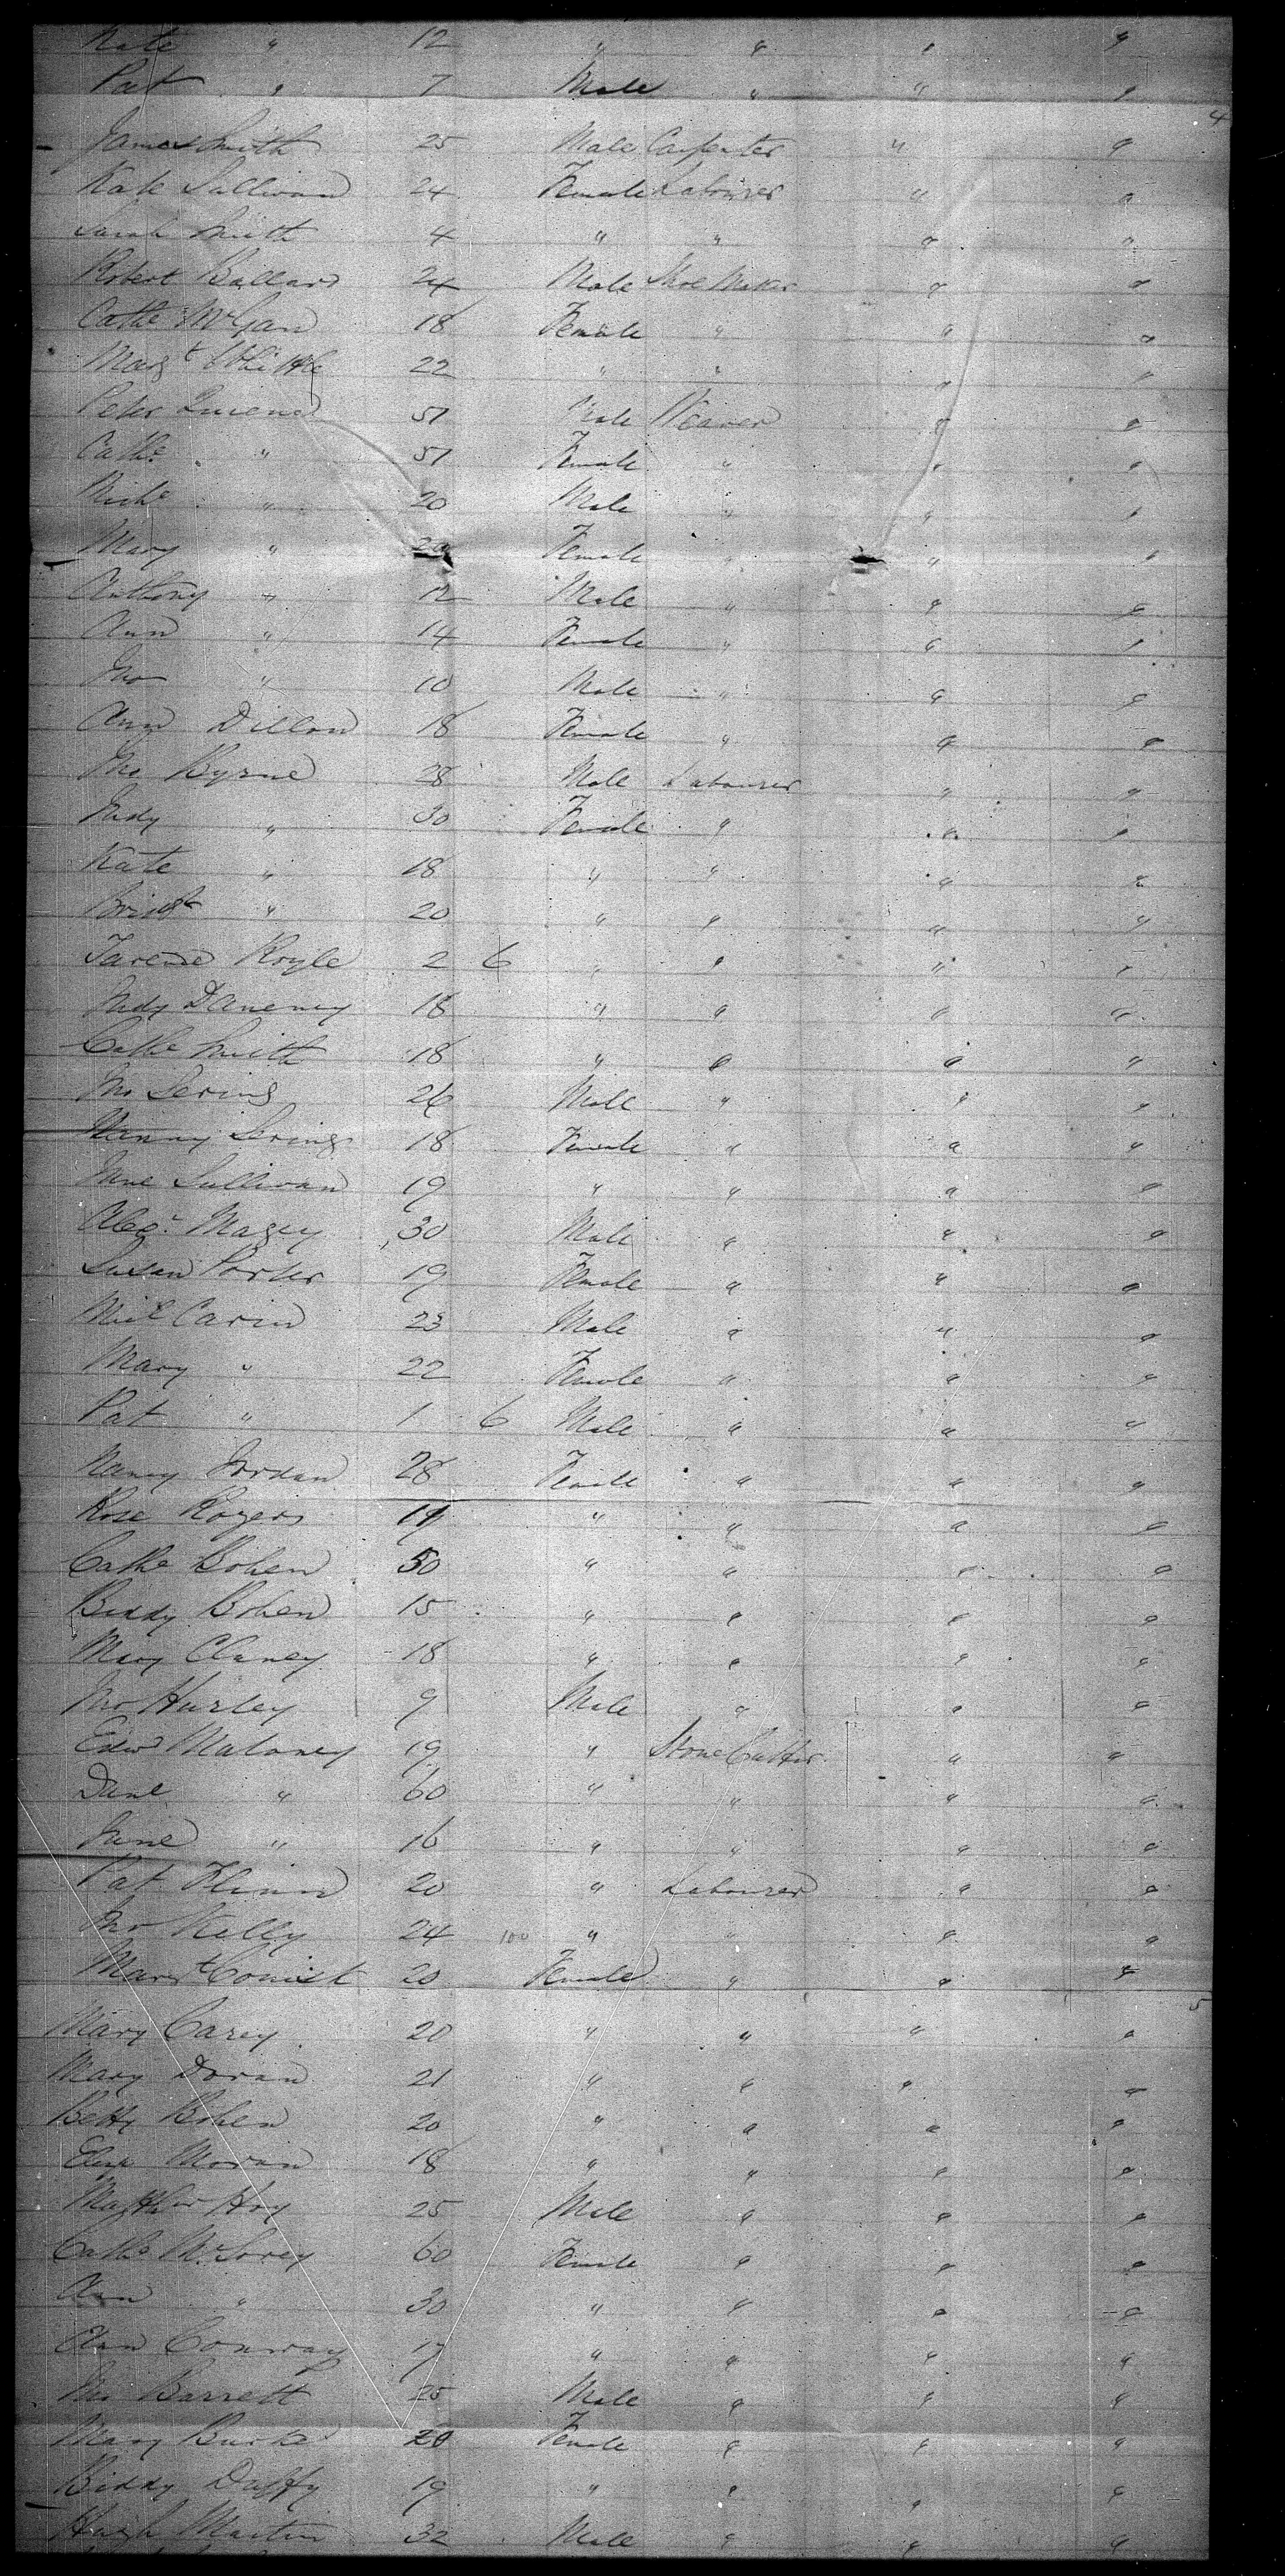 Kate " 12 " " " "
Pat " 7 Male " " "
4
James Smith 25 Male Carpenter " "
Kate Sullivan 24 Female Labourer " "
Sarah Smith 4 " " " "
Robert Ballard 24 Male Shoe Maker " "
Cathe McGan 18 Female " " "
Margt 22 " " " "
Peter 51 Male Weaver " "
Cathe " 51 Female " " "
Michl " 20 Male " " "
Mary " Female " " "
Anthony " 12 Male " " "
Ann " 14 Female " " "
Jno " 10 Male " " "
Ann Dillon 18 Female " " "
Jno Byrne 28 Male Labourer " "
Judy " 30 Female " " "
Kate " 18 " " " "
Bridgt " 20 " " " "
2 6 " " " "
Judy Daneney 18 " " " "
Cathe Smith 18 " " " "
Jno Sering 26 Male " " "
Sering 18 Female " " "
Jane Sullivan 19 " " " "
Alexr Magey 30 Male " " "
Susan Porter 19 Female " " "
Michl Carin 23 Male " " "
Mary " 22 Female " " "
Pat " 1 6 Male " " "
Nancy Jordan 28 Female " " "
Rose Rogers 19 " " " "
Cathe Bohen 50 " " " "
Biddy Bohen 15 " " " "
Mary Clancy 18 " " " "
Jno Hurley 9 Male " " "
Edwd Maloney 19 " Stone Cutter " "
Danl " 60 " " " "
June " 16 " " " "
Pat Flinn 20 " Labourer " "
Jno Kelly 24 100 " " " "
Margt 20 Female " " "
5
Mary Carey 20 " " " "
Mary Doran 21 " " " "
Betty Bohen 20 " " " "
Eliza Moran 18 " " " "
Matthew Hoy 25 Male " " "
Cathe McSorey 60 Female " " "
Ann " 30 " " " "
Ann Conway 17 " " " "
Jno Barrett 25 Male " " "
Mary Burke 20 Female " " "
Biddy Duffy 19 " " " "
Hugh Martin 32 Male " " "